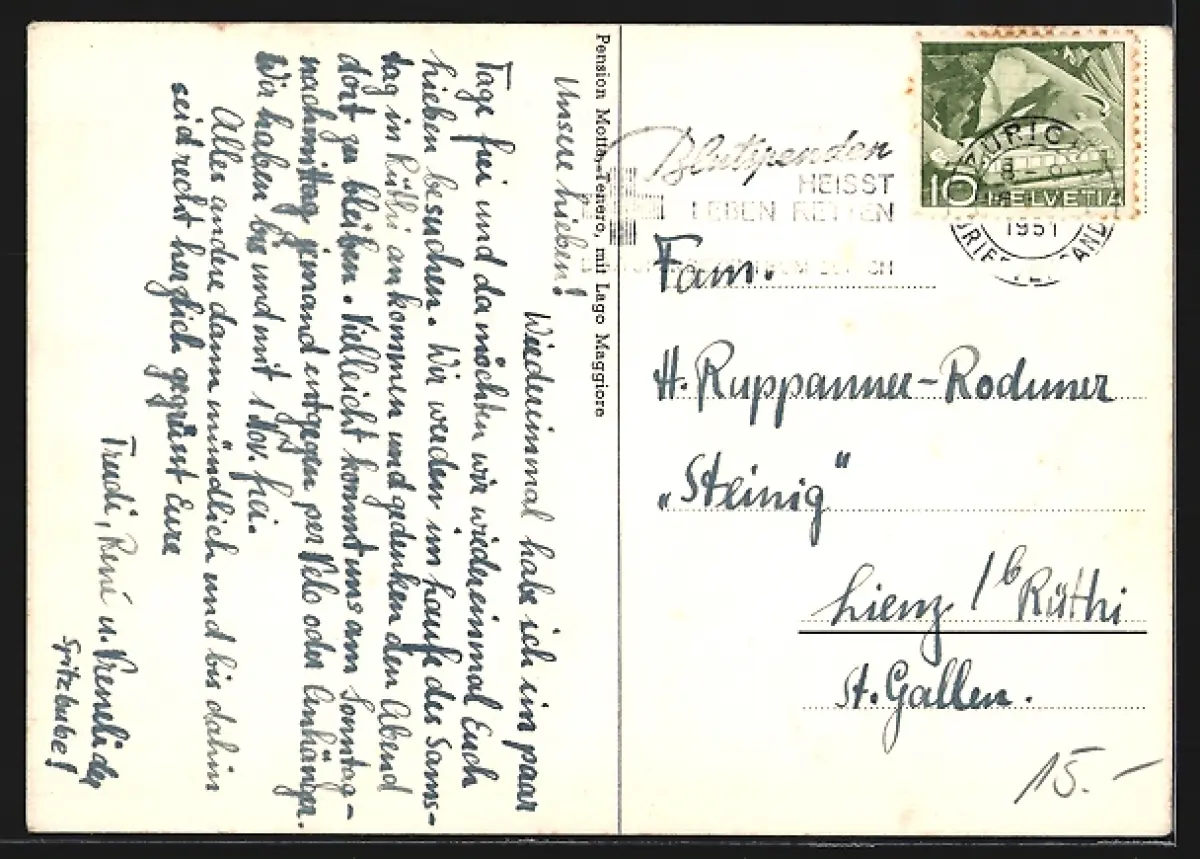 Unsere Lieben!
Wiedereinmal habe ich ein paar
Tage frei und da möchten wir wiedereinmal Euch
Lieben besuchen. Wir werden im Laufe des Sams-
tag in Rüthi ankommen und gedenken den Abend
dort zu bleiben. Vielleicht kommt uns am Sonntag-
nachmittag jemand entgegen per Velo oder Anhänger.
Wir haben bis und mit 1 Nov. frei.
Alles andere dann mündlich und bis dahin
seid recht herzlich gegrüsst Eure
Trudi, René u. Vreneli der
Spitzbube!
Pension Motta, Tenero, mit Lago Maggiore
Blutspenden
HEISST
LEBEN RETTEN
ZÜRICH
1951
10 HELVETIA
Fam.
H. Ruppanner-Roduner
„Steinig"
Lienz / b Rüthi
St. Gallen.
15.-